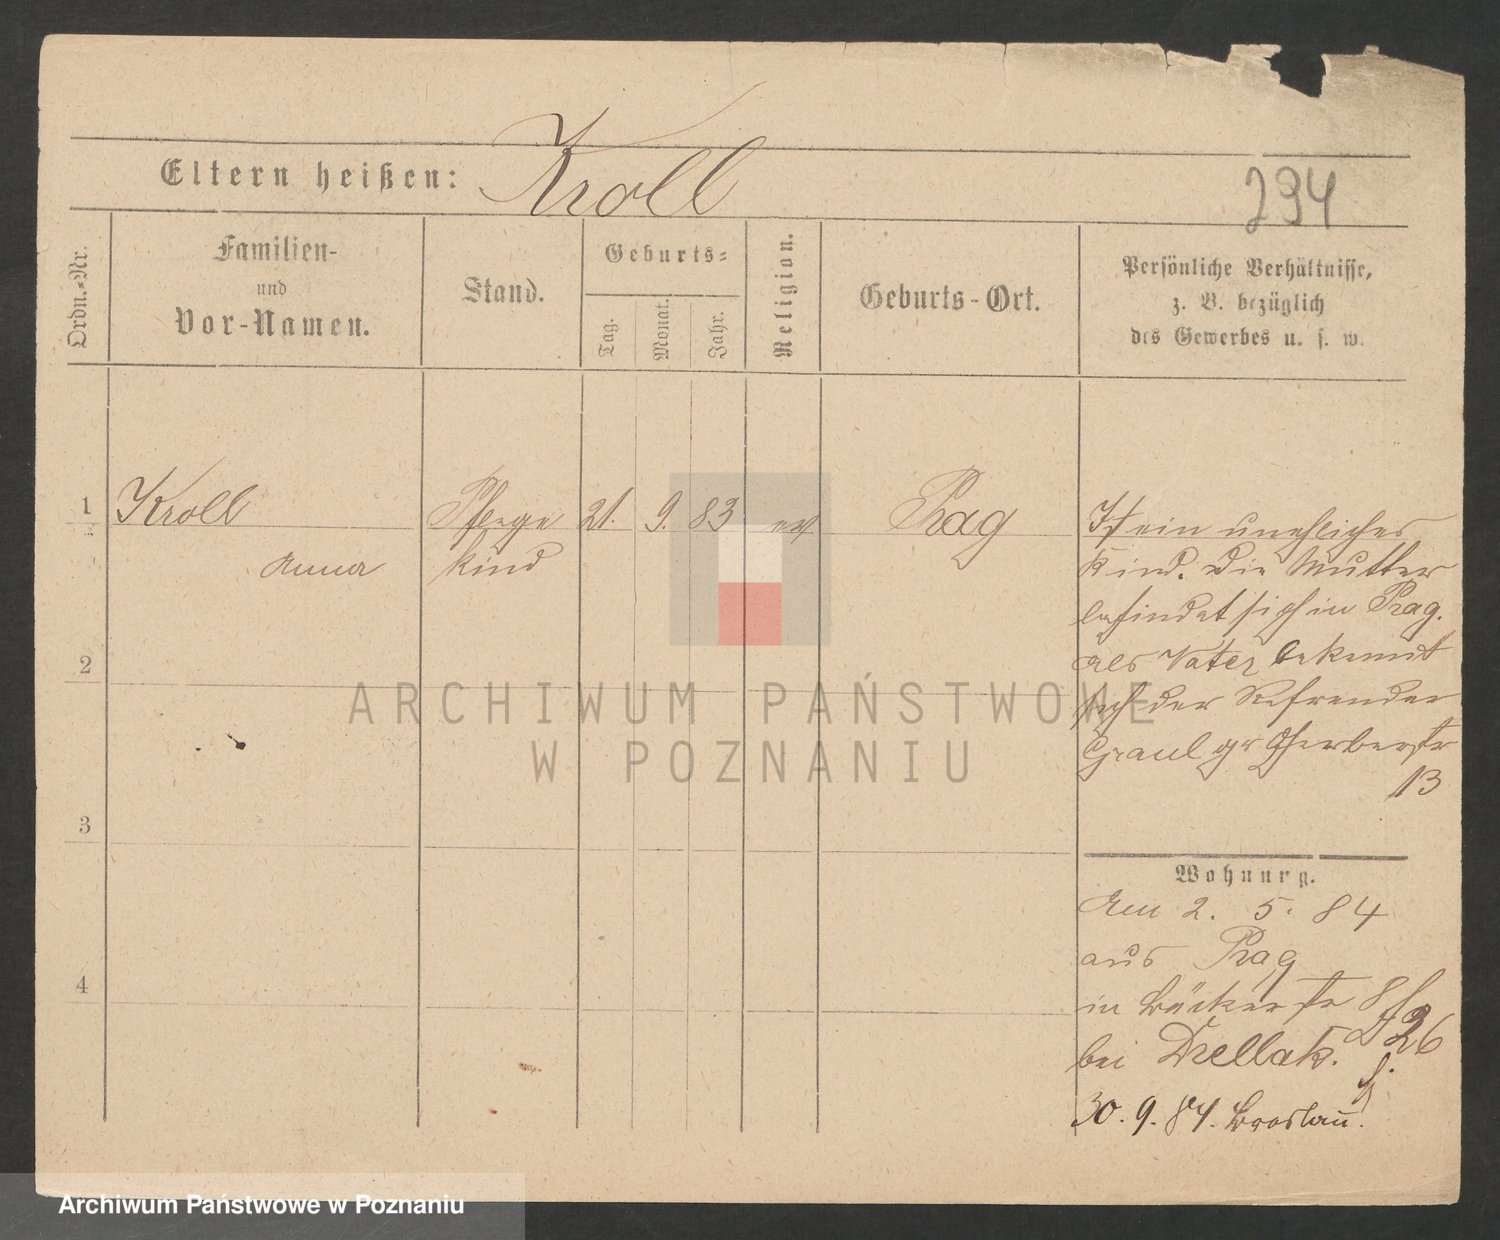 Eltern heißen: Kroll
294
Ordn.-Nr.
Familien-
und
Vor-Namen.
Stand.
Geburts-
Tag.
Monat.
Jahr.
Religion.
Geburts-Ort.
Persönliche Verhältnisse,
z. B. bezüglich
des Gewerbes u. s. w.
1 Kroll Pflege 21. 9. 83 ev. Prag
Anna kind
Ist ein unehliches
Kind. Die Mutter
befindet sich in Prag.
Als Vater bekennt
sich der Refrendar
Graul gr Gerberstr
13
2
3
4
ARCHIWUM PAŃSTWOWE
W POZNANIU
Wohnung.
Am 2. 5. 84
aus Prag
in Bäckerstr
26
bei Drellak.
30. 9. 84. Breslau.
Archiwum Państwowe w Poznaniu